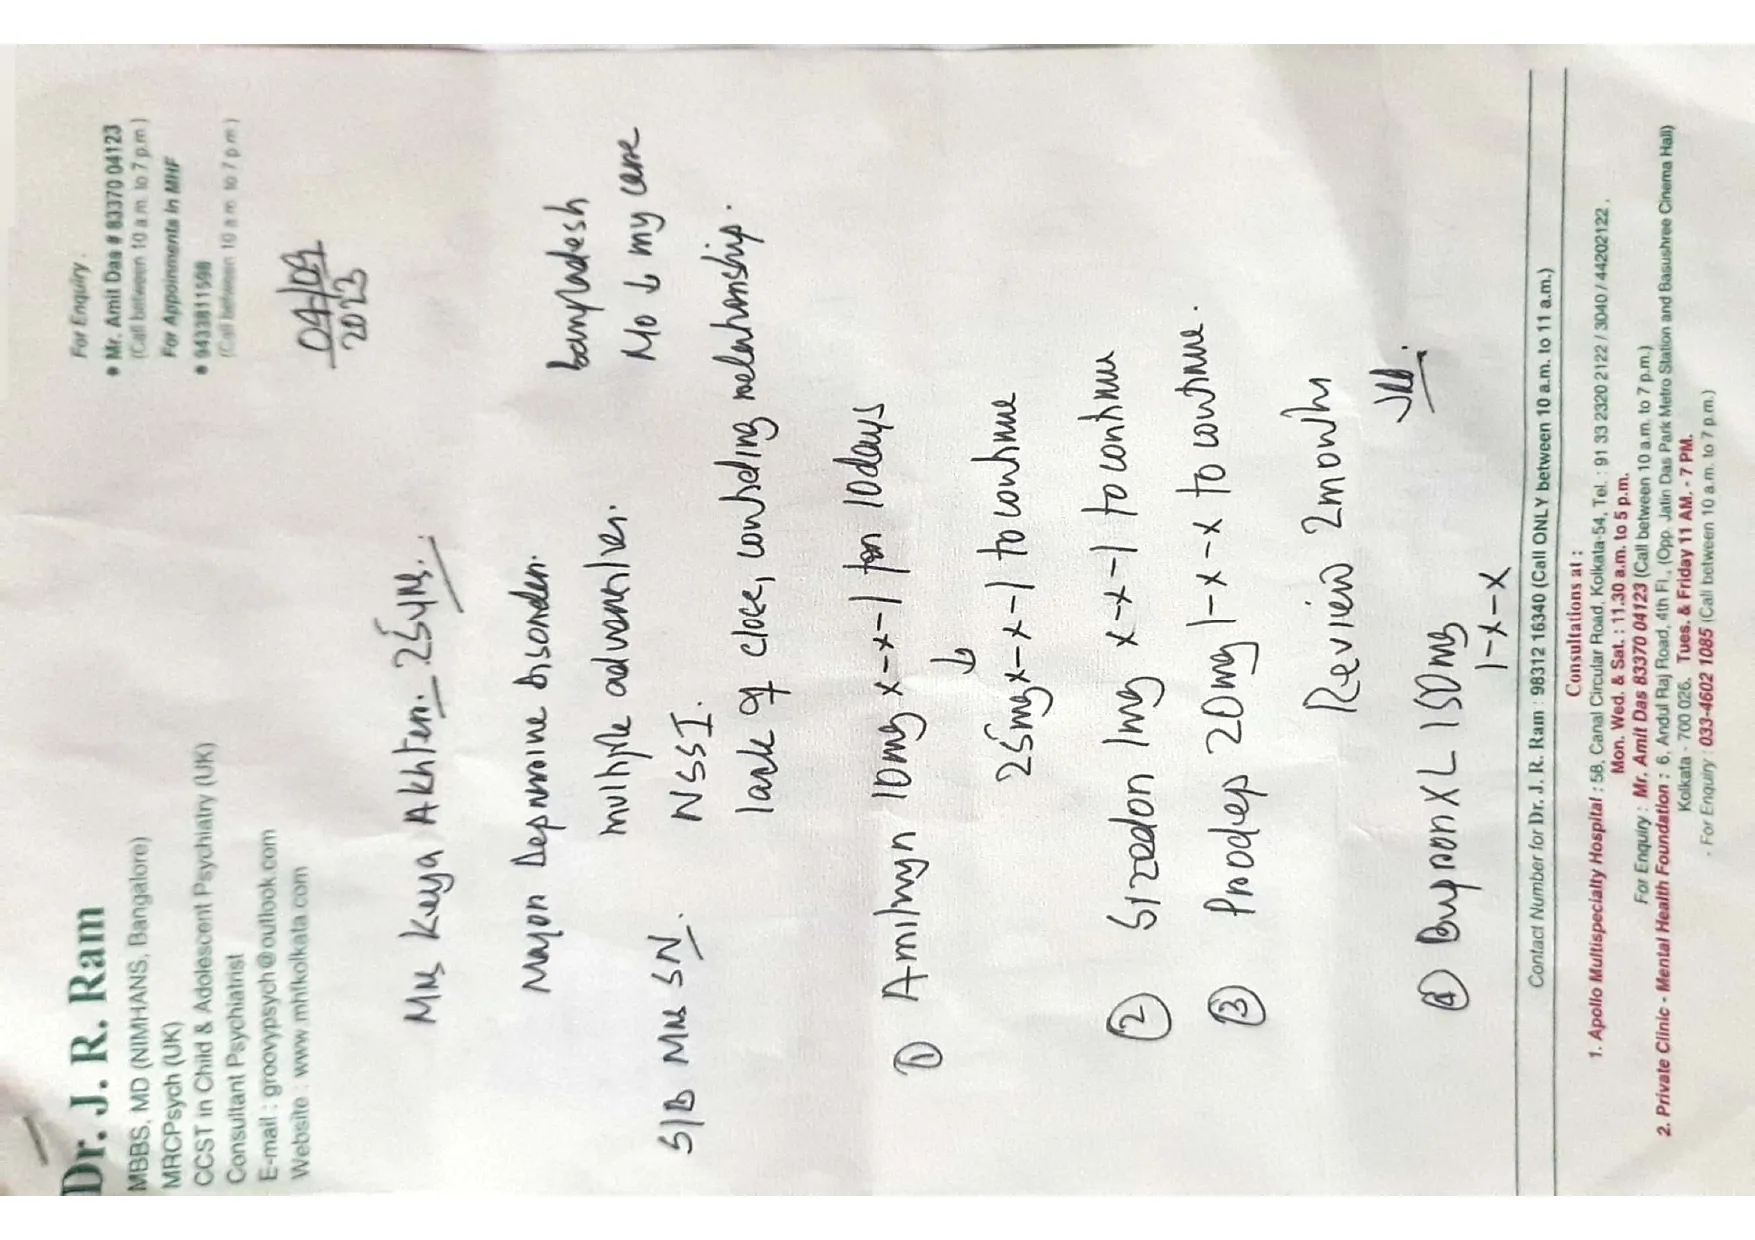 Dr. J. R. Ram
MBBS, MD (NIMHANS, Bangalore)
MRCPsych (UK)
CCST in Child & Adolescent Psychiatry (UK)
Consultant Psychiatrist
E-mail : groovypsych@outlook.com
Website : www.mhfkolkata.com
For Enquiry :
• Mr. Amit Das # 83370 04123
(Call between 10 a.m. to 7 p.m.)
For Appoinments in MHF
• 9433811598
(Call between 10 a.m. to 7 p.m.)
04/09
2023
Mrs Keya Akhter. 25yrs.
Major Depressive disorder. Bangladesh
multiple adversities. Mo ↓ my care
S/B Mrs SN. NSSI.
lack of close, confiding relationship.
① Amilmyn 10mg x-x-1 for 10days
↓
25mg x-x-1 to continue
② Sizodon 1mg x-x-1 to continue
③ Prodep 20mg 1-x-x to continue.
Review 2months
④ Bupron XL 150mg
1-x-x
Contact Number for Dr. J. R. Ram : 98312 16340 (Call ONLY between 10 a.m. to 11 a.m.)
Consultations at :
1. Apollo Multispecialty Hospital : 58, Canal Circular Road, Kolkata-54, Tel. : 91 33 2320 2122 / 3040 / 44202122,
Mon. Wed. & Sat. : 11.30 a.m. to 5 p.m.
For Enquiry : Mr. Amit Das 83370 04123 (Call between 10 a.m. to 7 p.m.)
2. Private Clinic - Mental Health Foundation : 6, Andul Raj Road, 4th Fl., (Opp. Jatin Das Park Metro Station and Basushree Cinema Hall)
Kolkata - 700 026. Tues. & Friday 11 AM. - 7 PM.
- For Enquiry : 033-4602 1085 (Call between 10 a.m. to 7 p.m.)